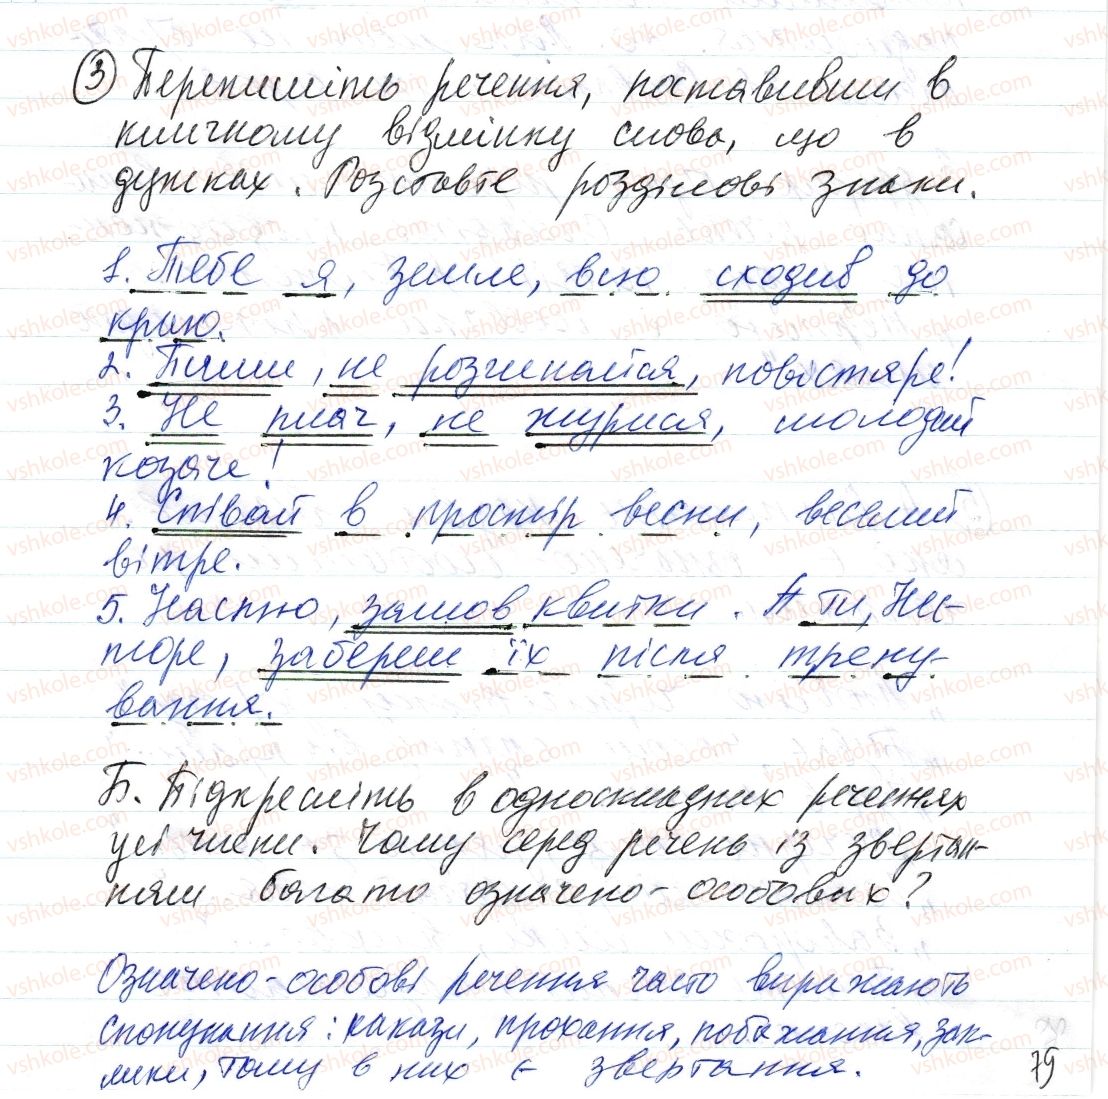 ③ Перепишіть речення, поставивши в
кличному відмінку слова, що в
дужках. Розставте розділові знаки.
1. Тебе я, земле, всю сходив до
краю.
2. Пиши, не розчиняйся, повістяре!
3. Не плач, не журися, молодий
козаче!
4. Співай в простір весни, веселий
вітре.
5. Настю, замов квитки. А ти, Нес-
торе, забереш їх після трену-
вання.
Б. Підкресліть в односкладних реченнях
усі члени. Чому серед речень із звертан-
ням багато означено-особових?
Означено-особові речення часто виражають
спонукання: накази, прохання, побажання, зак-
лики, тому в них є звертання.
79